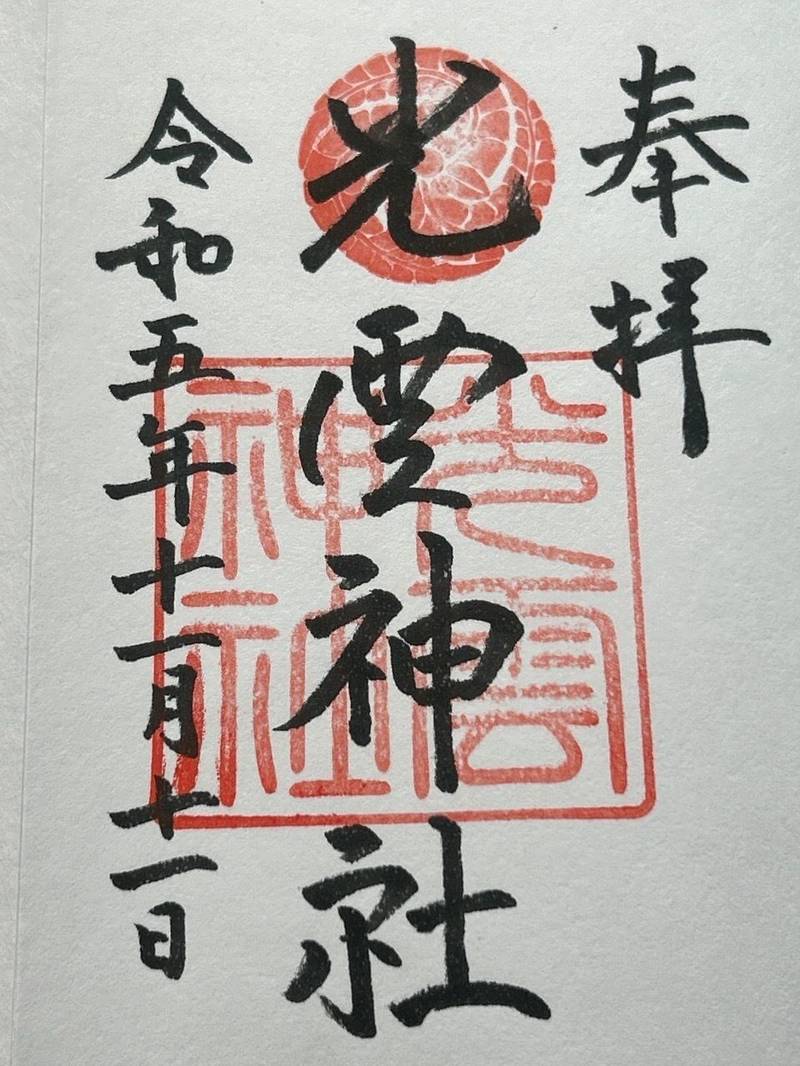 奉拝
光雲神社
光雲神社
令和五年十一月十一日